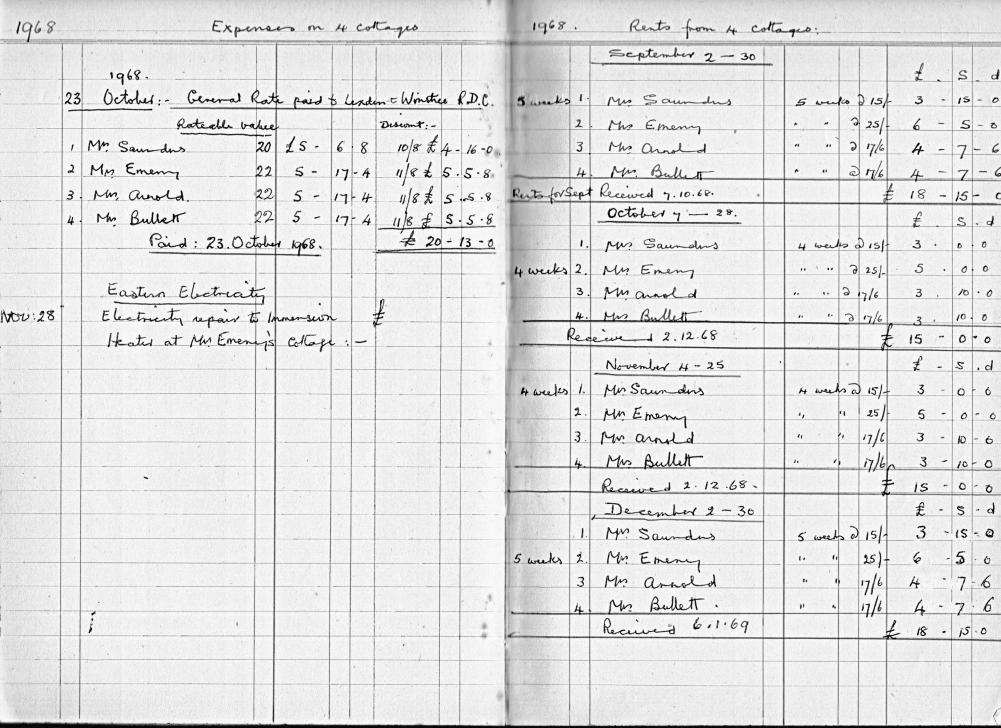 1968 Expenses on 4 cottages
1968.
23 October:- General Rate paid to Lexden & Winstree R.D.C.
Rateable value Discount:-
1 Mrs Saunders 20 £5 - 6 - 8 10/8 £4-16-0
2 Mrs Emeny 22 5 - 17-4 11/8 £5.5.8
3. Mrs. Arnold. 22 5 - 17-4 11/8 £5.5.8
4. Mrs Bullett 22 5 - 17-4 11/8 £5.5.8
Paid: 23. October 1968. £20-13-0
Eastern Electricity
Nov: 28 Electricity repair to Immersion £
Heater at Mrs Emeny's Cottage:-
1968. Rents from 4 cottages:-
September 2-30
£ . S . d
5 weeks 1. Mrs Saunders 5 weeks @ 15/- 3 - 15 - 0
2. Mrs Emeny " " @ 25/- 6 - 5 - 0
3 Mrs Arnold " " @ 17/6 4 - 7 - 6
4. Mrs Bullett " " @ 17/6 4 - 7 - 6
Rents for Sept Received 7.10.68. £ 18 - 15 - 0
October 7 - 28. £ . S . d
1. Mrs Saunders 4 weeks @ 15/- 3 . 0 . 0
4 weeks 2. Mrs Emeny " " @ 25/- 5 . 0 . 0
3. Mrs Arnold " " @ 17/6 3 . 10 . 0
4. Mrs Bullett " " @ 17/6 3 . 10 . 0
Received 2.12.68 £ 15 - 0 - 0
November 4 - 25 £ - S . d
4 weeks 1. Mrs Saunders 4 weeks @ 15/- 3 0 0
2. Mrs Emeny " " 25/- 5 - 0 - 0
3. Mrs Arnold " " 17/6 3 - 10 - 0
4. Mrs Bullett " " 17/6 3 - 10 - 0
Received 2.12.68. £ 15 - 0 - 0
December 2 - 30 £ - S - d
1. Mrs Saunders 5 weeks @ 15/- 3 - 15 - 0
5 weeks 2. Mrs Emeny " " 25/- 6 - 5 . 0
3 Mrs Arnold " " 17/6 4 - 7 - 6
4. Mrs Bullett. " " 17/6 4 - 7 . 6
Received 6.1.69 £ 18 - 15.0